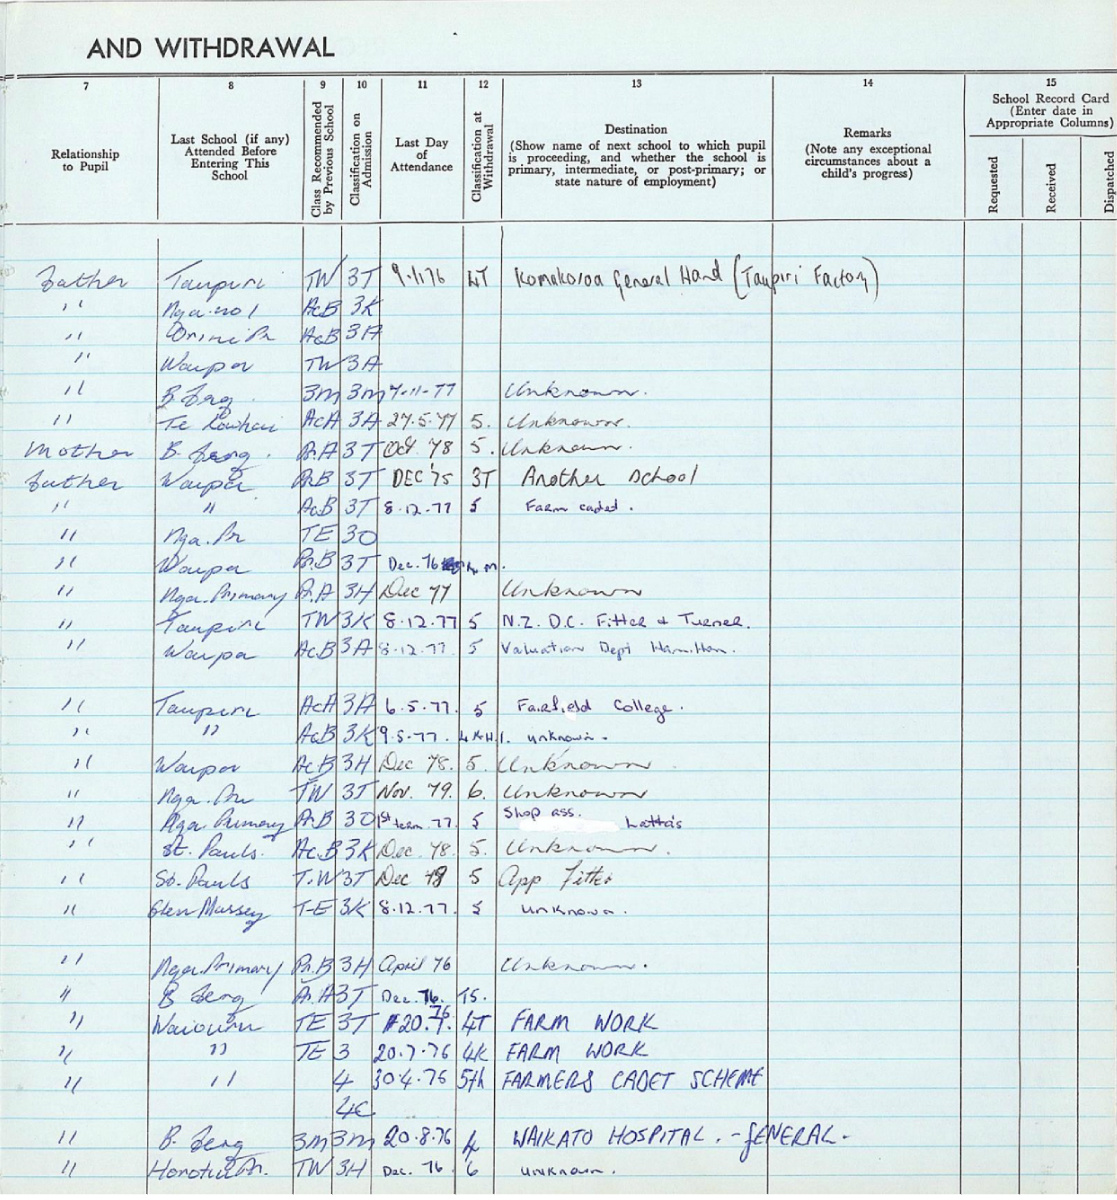 AND WITHDRAWAL
7 8 9 10 11 12 13 14 15
Relationship to Pupil
Last School (if any) Attended Before Entering This School
Class Recommended by Previous School
Classification on Admission
Last Day of Attendance
Classification at Withdrawal
Destination
(Show name of next school to which pupil is proceeding, and whether the school is primary, intermediate, or post-primary; or state nature of employment)
Remarks
(Note any exceptional circumstances about a child's progress)
School Record Card
(Enter date in Appropriate Columns)
Requested
Received
Dispatched
Father Taupiri TW 3T 9·1·76 4T Komakorau General Hand (Taupiri Factory)
" Nga. no 1 AcB 3K
" Orini Pr AcB 3A
" Waipa TW 3A
" B Ferg. 3m 3m 7-11-77 Unknown.
" Te Kowhai AcA 3A 27.5.77 5. Unknown.
Mother B. Ferg. Pr.A 3T Oct '78 5. Unknown.
Father Waipa Pr.B 3T DEC '75 3T Another School
" " AcB 3T 8.12.77 5 Farm cadet.
" Nga. Pr TE 3O
" Waipa Pr.B 3T Dec. 76 4 m.
" Nga. Primary Pr.A 3H Dec 77 Unknown
" Taupiri TW 3K 8.12.77 5 N.Z. D.C. Fitter & Turner.
" Waipa AcB 3A 8.12.77. 5 Valuation Dept Hamilton.
" Taupiri AcA 3A 6.5.77. 5 Fairfield College.
" " AcB 3K 9.5.77. 4KH1. unknown.
" Waipa AcB 3H Dec 78. 5. Unknown.
" Nga. Pr TW 3T Nov. 79. 6. Unknown
" Nga. Primary Pr.B 3O 1st term. 77. 5 Shop ass. Latta's
" St. Pauls. AcB 3K Dec 78. 5. Unknown.
" St. Pauls T.W 3T Dec 78 5 App Fitter
" Glen Massey T-E 3K 8.12.77. 5 unknown.
" Nga. Primary Pr.B 3H April 76 Unknown.
" B Ferg Pr.A 3T Dec. 76. T5.
" Waiouru TE 3T 20.7.76 4T FARM WORK
" " TE 3 20.7.76 4K FARM WORK
" " 4 30.4.76 5th FARMERS CADET SCHEME
4C
" B. Ferg 3m 3m 20.8.76 4 WAIKATO HOSPITAL. - GENERAL.
" Horotiu Pr. TW 3H Dec. 76. 6 unknown.